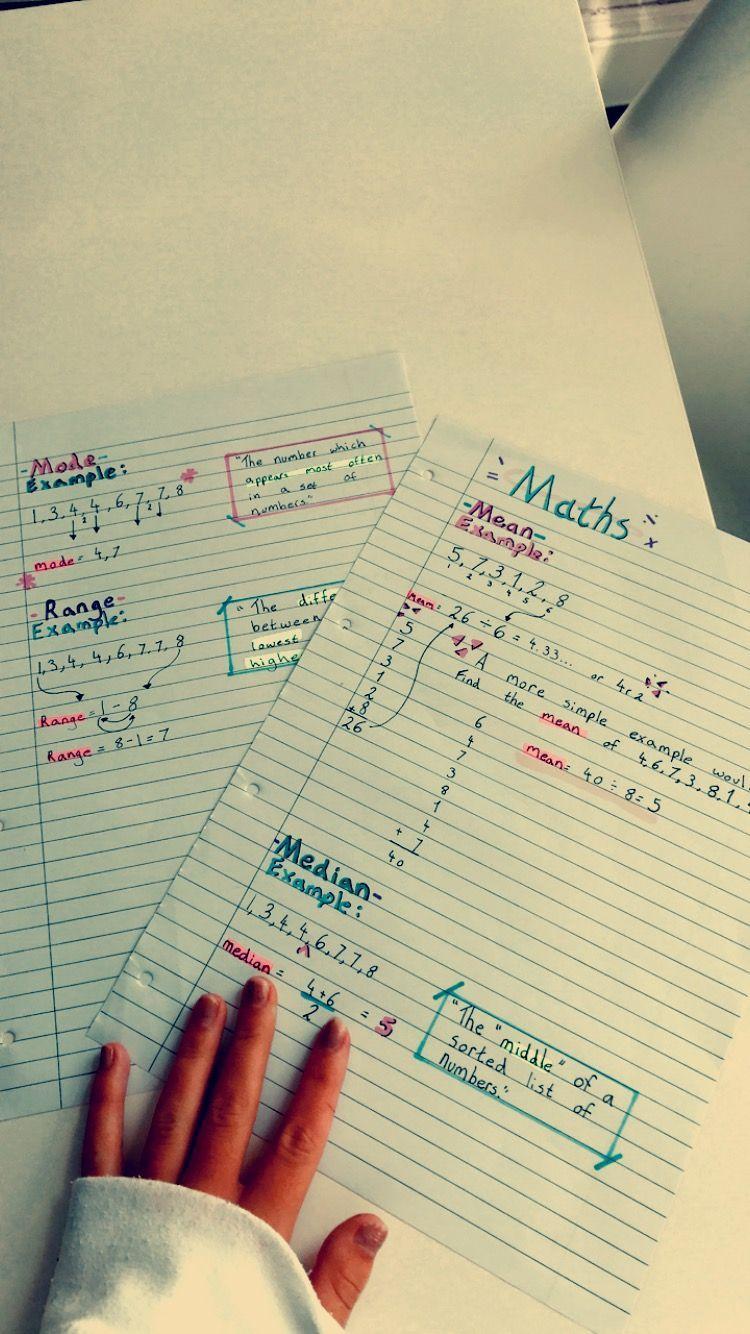 -Mode-
Example:
1,3,4,4,6,7,7,8
2 2
mode= 4,7
"The number which
appears most often
in a set of
numbers."
-Range-
Example:
1,3,4,4,6,7,7,8
Range= 1-8
Range= 8-1=7
"The
between
lowest
Maths
-Mean-
Example:
5,7,3,1,2,8
1 2 3 4 5 6
mean= 26÷6=4.33... or 4r2
5
7
3
1
2
+8
26
A more simple example
Find the mean of 4,6,7,3,8,1,
6
4
7
3
8
1
4
+ 7
40
mean= 40÷8=5
-Median-
Example:
1,3,4,4,6,7,7,8
median= 4+6
2
= 5
"The "middle" of a
sorted list of
numbers."